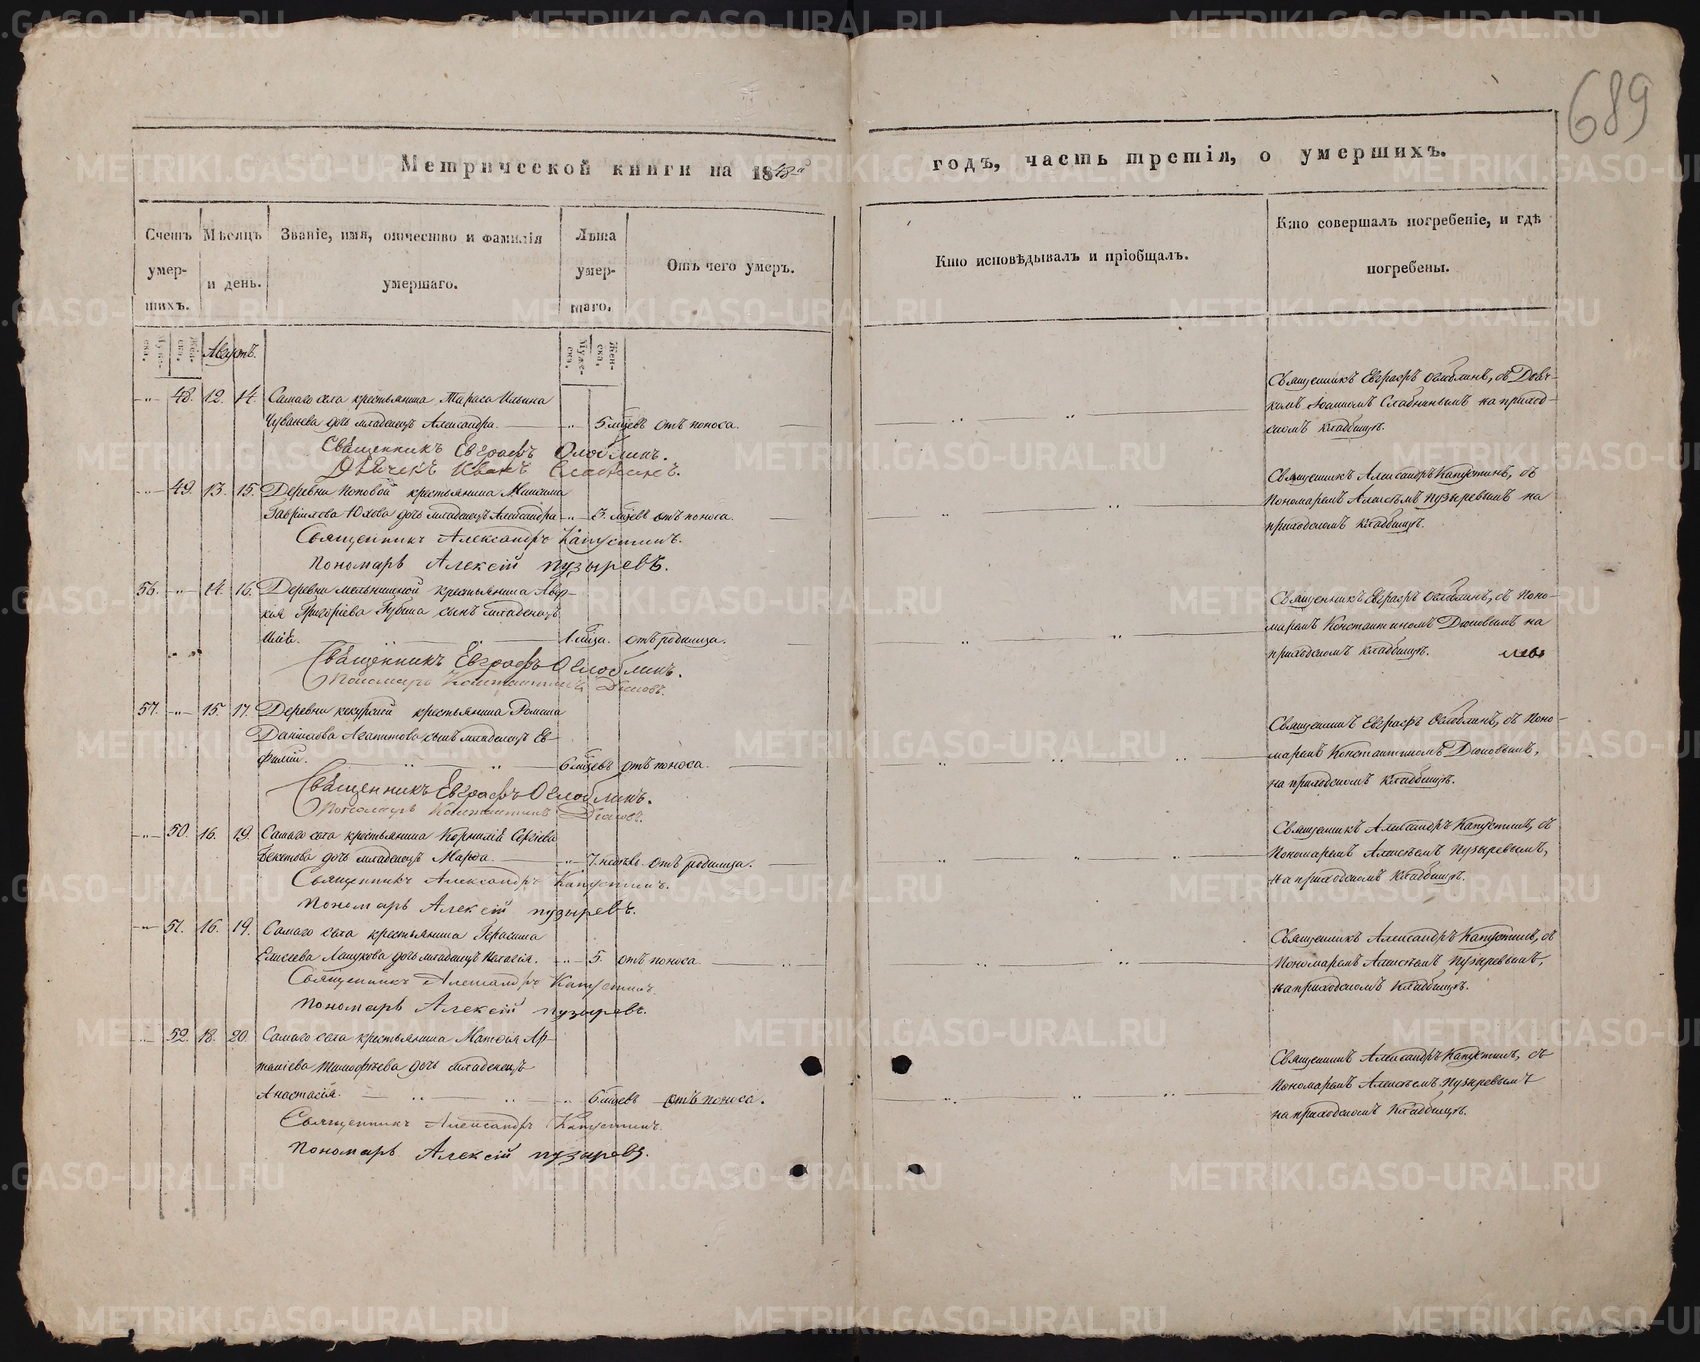 689
Метрической книги на 1848й годъ, часть третія, о умершихъ.
Счетъ умер-
шихъ.
Мѣсяцъ
и день.
Званіе, имя, отчество и фамилія
умершаго.
Лѣта
умер-
шаго.
Отъ чего умеръ.
Кто исповѣдывалъ и пріобщалъ.
Кто совершалъ погребеніе, и гдѣ
погребены.
Муже-
ска.
Жен-
ска.
Августъ.
Муже-
ска.
Жен-
ска.
48. 12. 14. Самаго села крестьянина Тараса Ильина
дочь младенецъ Александра. 5 мцевъ отъ поноса.
Священникъ Евграфъ Оглоблинъ.
Дьячекъ Иванъ
Священникъ Евграфъ Оглоблинъ, съ Дьяч-
комъ Іоанномъ на приход-
скомъ кладбищѣ.
49. 13. 15. Деревни Поповой крестьянина Максима
Гаврилова Юхова дочь младенецъ Александра 3. мцевъ отъ поноса.
Священникъ Александръ Капустинъ.
Пономарь Алексій Пузыревъ.
Священникъ Александръ Капустинъ, съ
Пономаремъ Алексѣемъ Пузыревымъ на
приходскомъ кладбищѣ.
56. 14. 16. Деревни Мельнишной крестьянина Авер-
кія Григоріева Губина сынъ младенецъ
1 мца. отъ родимца.
Священникъ Евграфъ Оглоблинъ.
Пономарь Константинъ Дюковъ.
Священникъ Евграфъ Оглоблинъ, съ Поно-
маремъ Константиномъ Дюковымъ на
приходскомъ кладбищѣ.
57. 15. 17. Деревни крестьянина Романа
Данилова Агапитова сынъ младенецъ Ев-
фимій. 6 мцевъ отъ поноса.
Священникъ Евграфъ Оглоблинъ.
Пономарь Константинъ Дюковъ.
Священникъ Евграфъ Оглоблинъ, съ Поно-
маремъ Константиномъ Дюковымъ,
на приходскомъ кладбищѣ.
50. 16. 19. Самаго села крестьянина Корнилія Сергіева
Бекетова дочь младенецъ Марѳа. 7. отъ родимца.
Священникъ Александръ Капустинъ.
Пономарь Алексій Пузыревъ.
Священникъ Александръ Капустинъ, съ
Пономаремъ Алексѣемъ Пузыревымъ,
на приходскомъ кладбищѣ.
51. 16. 19. Самаго села крестьянина Герасима
Елисеева дочь младенецъ Наталія. 5. отъ поноса.
Священникъ Александръ Капустинъ.
Пономарь Алексій Пузыревъ.
Священникъ Александръ Капустинъ, съ
Пономаремъ Алексѣемъ Пузыревымъ,
на приходскомъ кладбищѣ.
52. 18. 20. Самаго села крестьянина Матѳія Ар-
теміева Тимофѣева дочь младенецъ
Анастасія. 6 мцевъ отъ поноса.
Священникъ Александръ Капустинъ.
Пономарь Алексій Пузыревъ.
Священникъ Александръ Капустинъ, съ
Пономаремъ Алексѣемъ Пузыревымъ
на приходскомъ кладбищѣ.
METRIKI.GASO-URAL.RU